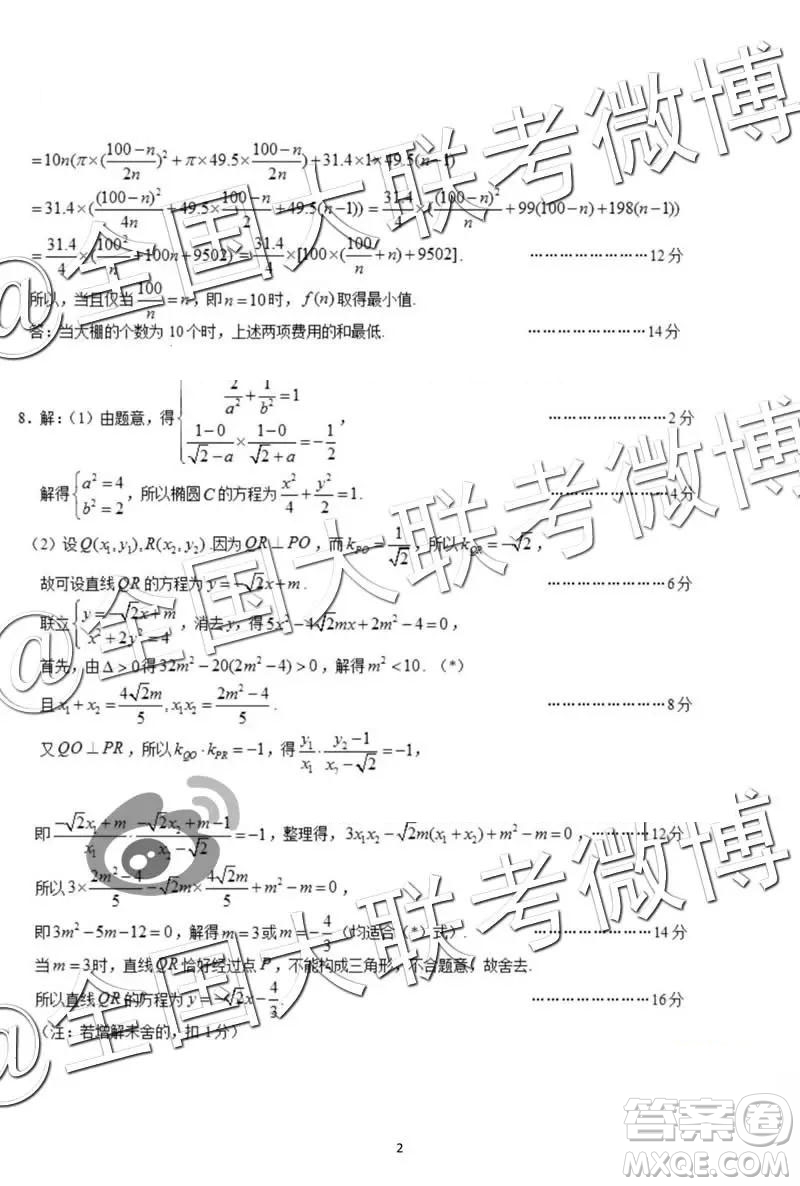 =10n(π×(\frac{100-n}{2n})^2+π×49.5×\frac{100-n}{2n})+31.4×1×49.5(n-1)
=31.4×(\frac{(100-n)^2}{4n}+49.5×\frac{100-n}{2}+49.5(n-1))=\frac{31.4}{4}×(\frac{(100-n)^2}{n}+99(100-n)+198(n-1))
=\frac{31.4}{4}×(\frac{100^2}{n}+100n+9502)=\frac{31.4}{4}×[100×(\frac{100}{n}+n)+9502]. ……………………12分
所以,当且仅当\frac{100}{n}=n,即n=10时,f(n)取得最小值.
答:当大棚的个数为10个时,上述两项费用的和最低. ……………………14分
8.解:(1)由题意,得{\frac{2}{a^2}+\frac{1}{b^2}=1 \frac{1-0}{√2-a}×\frac{1-0}{√2+a}=-\frac{1}{2}, ……………………2分
解得{a^2=4 b^2=2,所以椭圆C的方程为\frac{x^2}{4}+\frac{y^2}{2}=1. ……………………4分
(2)设Q(x_1,y_1),R(x_2,y_2).因为QR⊥PO,而k_{PO}=\frac{1}{√2},所以k_{QR}=-√2,
故可设直线QR的方程为y=-√2x+m. ……………………6分
联立{y=-√2x+m x^2+2y^2=4,消去y,得5x^2-4√2mx+2m^2-4=0,
首先,由Δ>0得32m^2-20(2m^2-4)>0,解得m^2<10.(*)
且x_1+x_2=\frac{4√2m}{5},x_1x_2=\frac{2m^2-4}{5}. ……………………8分
又QO⊥PR,所以k_{QO}·k_{PR}=-1,得\frac{y_1}{x_1}·\frac{y_2-1}{x_2-√2}=-1,
即\frac{-√2x_1+m}{x_1}·\frac{-√2x_2+m-1}{x_2-√2}=-1,整理得,3x_1x_2-√2m(x_1+x_2)+m^2-m=0,…………12分
所以3×\frac{2m^2-4}{5}-√2m×\frac{4√2m}{5}+m^2-m=0,
即3m^2-5m-12=0,解得m=3或m=-\frac{4}{3}(均适合(*)式). ……………………14分
当m=3时,直线QR恰好经过点P,不能构成三角形,不合题意,故舍去.
所以直线QR的方程为y=-√2x-\frac{4}{3}. ……………………16分
(注:若增解未舍的,扣1分)
@全国大联考微博
@全国大联考微博
答案卷
MXQE.COM
2